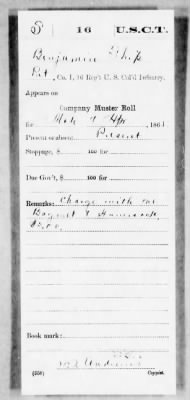 S 16 U.S.C.T.
Benjamin
Pvt, Co. I, 16 Reg't U. S. Col'd Infantry.
Appears on
Company Muster Roll
for 186
Present or absent Present
Stoppage, $ 100 for
Due Gov't, $ 100 for
Remarks: Charge with one
Bayonet &
Book mark:
(358) Copyist.